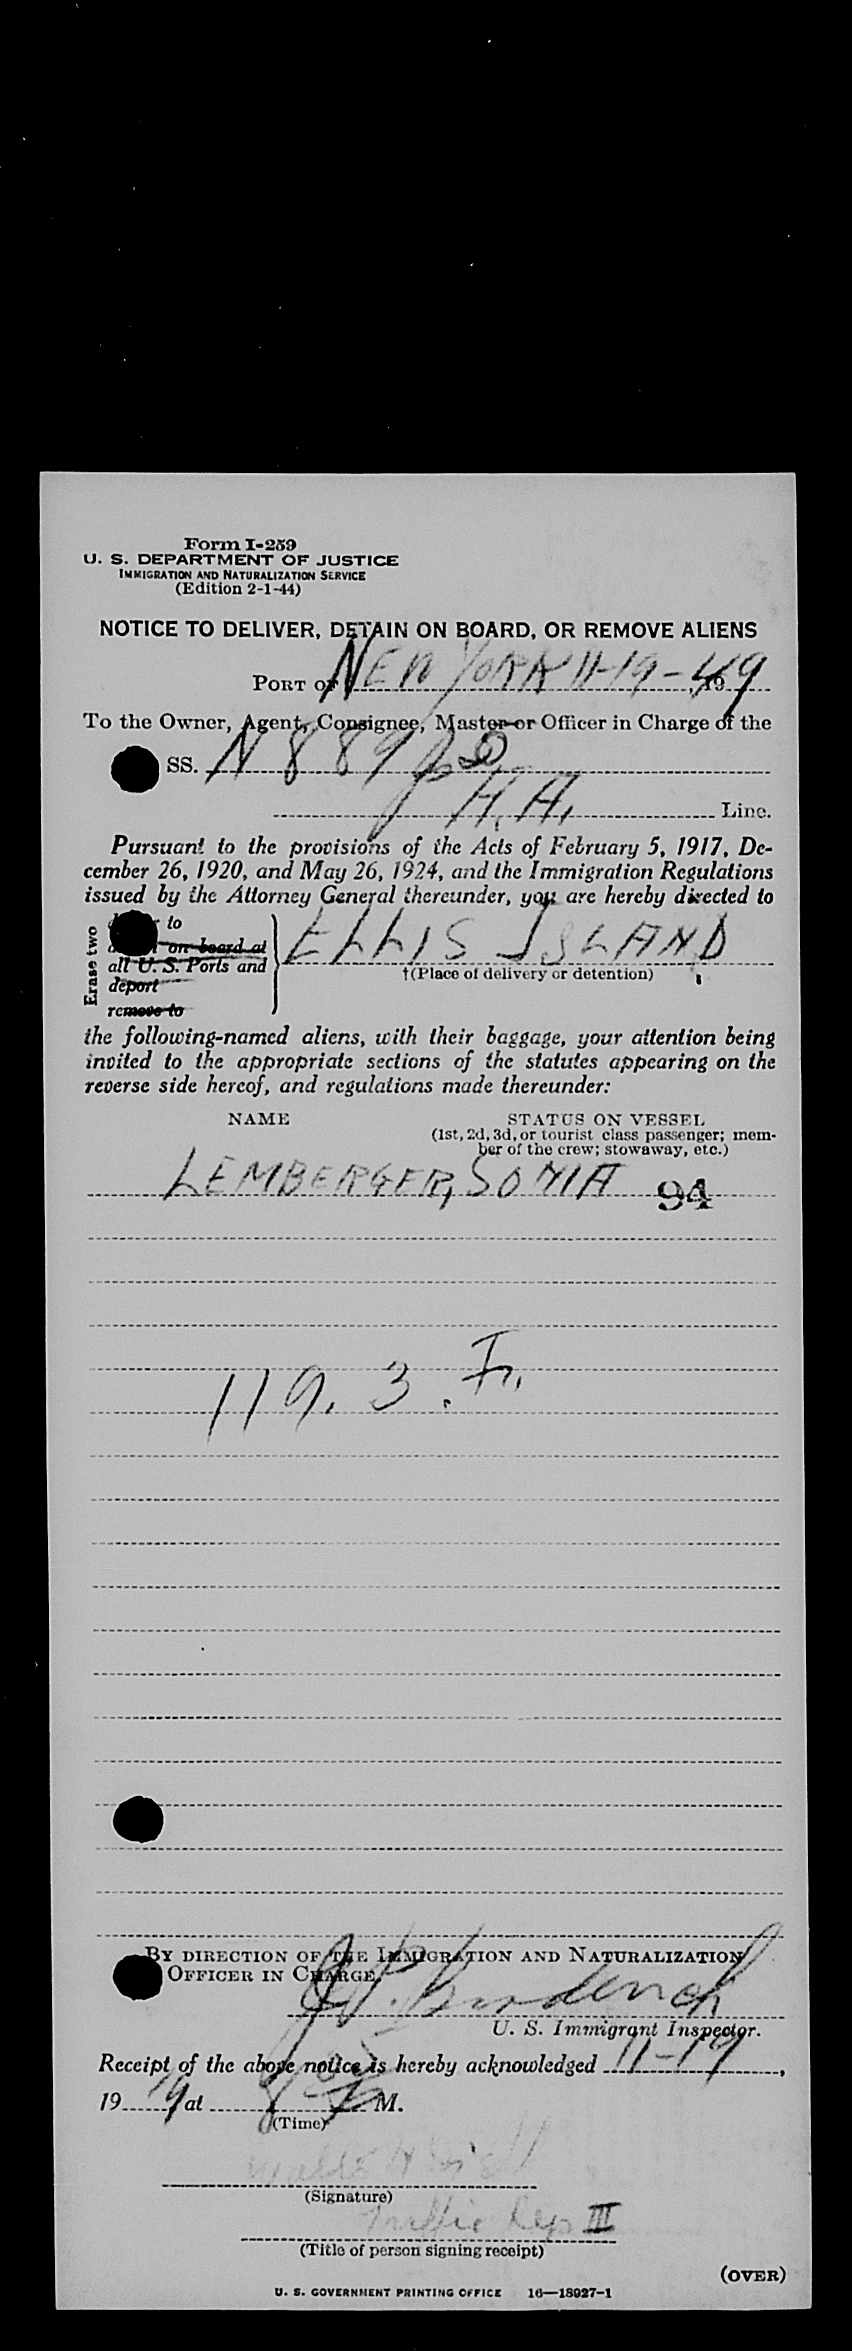 Form I-259
U. S. DEPARTMENT OF JUSTICE
IMMIGRATION AND NATURALIZATION SERVICE
(Edition 2-1-44)
NOTICE TO DELIVER, DETAIN ON BOARD, OR REMOVE ALIENS
PORT OF NEW YORK 11-19-, 1949
To the Owner, Agent, Consignee, Master or Officer in Charge of the
SS. N 889
A. A. Line.
Pursuant to the provisions of the Acts of February 5, 1917, De-
cember 26, 1920, and May 26, 1924, and the Immigration Regulations
issued by the Attorney General thereunder, you are hereby directed to
Erase two
to
on board at
all U. S. Ports and
deport
remove to
ELLIS ISLAND
†(Place of delivery or detention)
the following-named aliens, with their baggage, your attention being
invited to the appropriate sections of the statutes appearing on the
reverse side hereof, and regulations made thereunder:
NAME STATUS ON VESSEL
(1st, 2d, 3d, or tourist class passenger; mem-
ber of the crew; stowaway, etc.)
LEMBERGER, SONIA 94
119. 3.
BY DIRECTION OF THE IMMIGRATION AND NATURALIZATION
OFFICER IN CHARGE,
U. S. Immigrant Inspector.
Receipt of the above notice is hereby acknowledged 11-19,
19 at M.
(Time)
(Signature)
Traffic Rep III
(Title of person signing receipt)
(OVER)
U. S. GOVERNMENT PRINTING OFFICE 16—18927-1